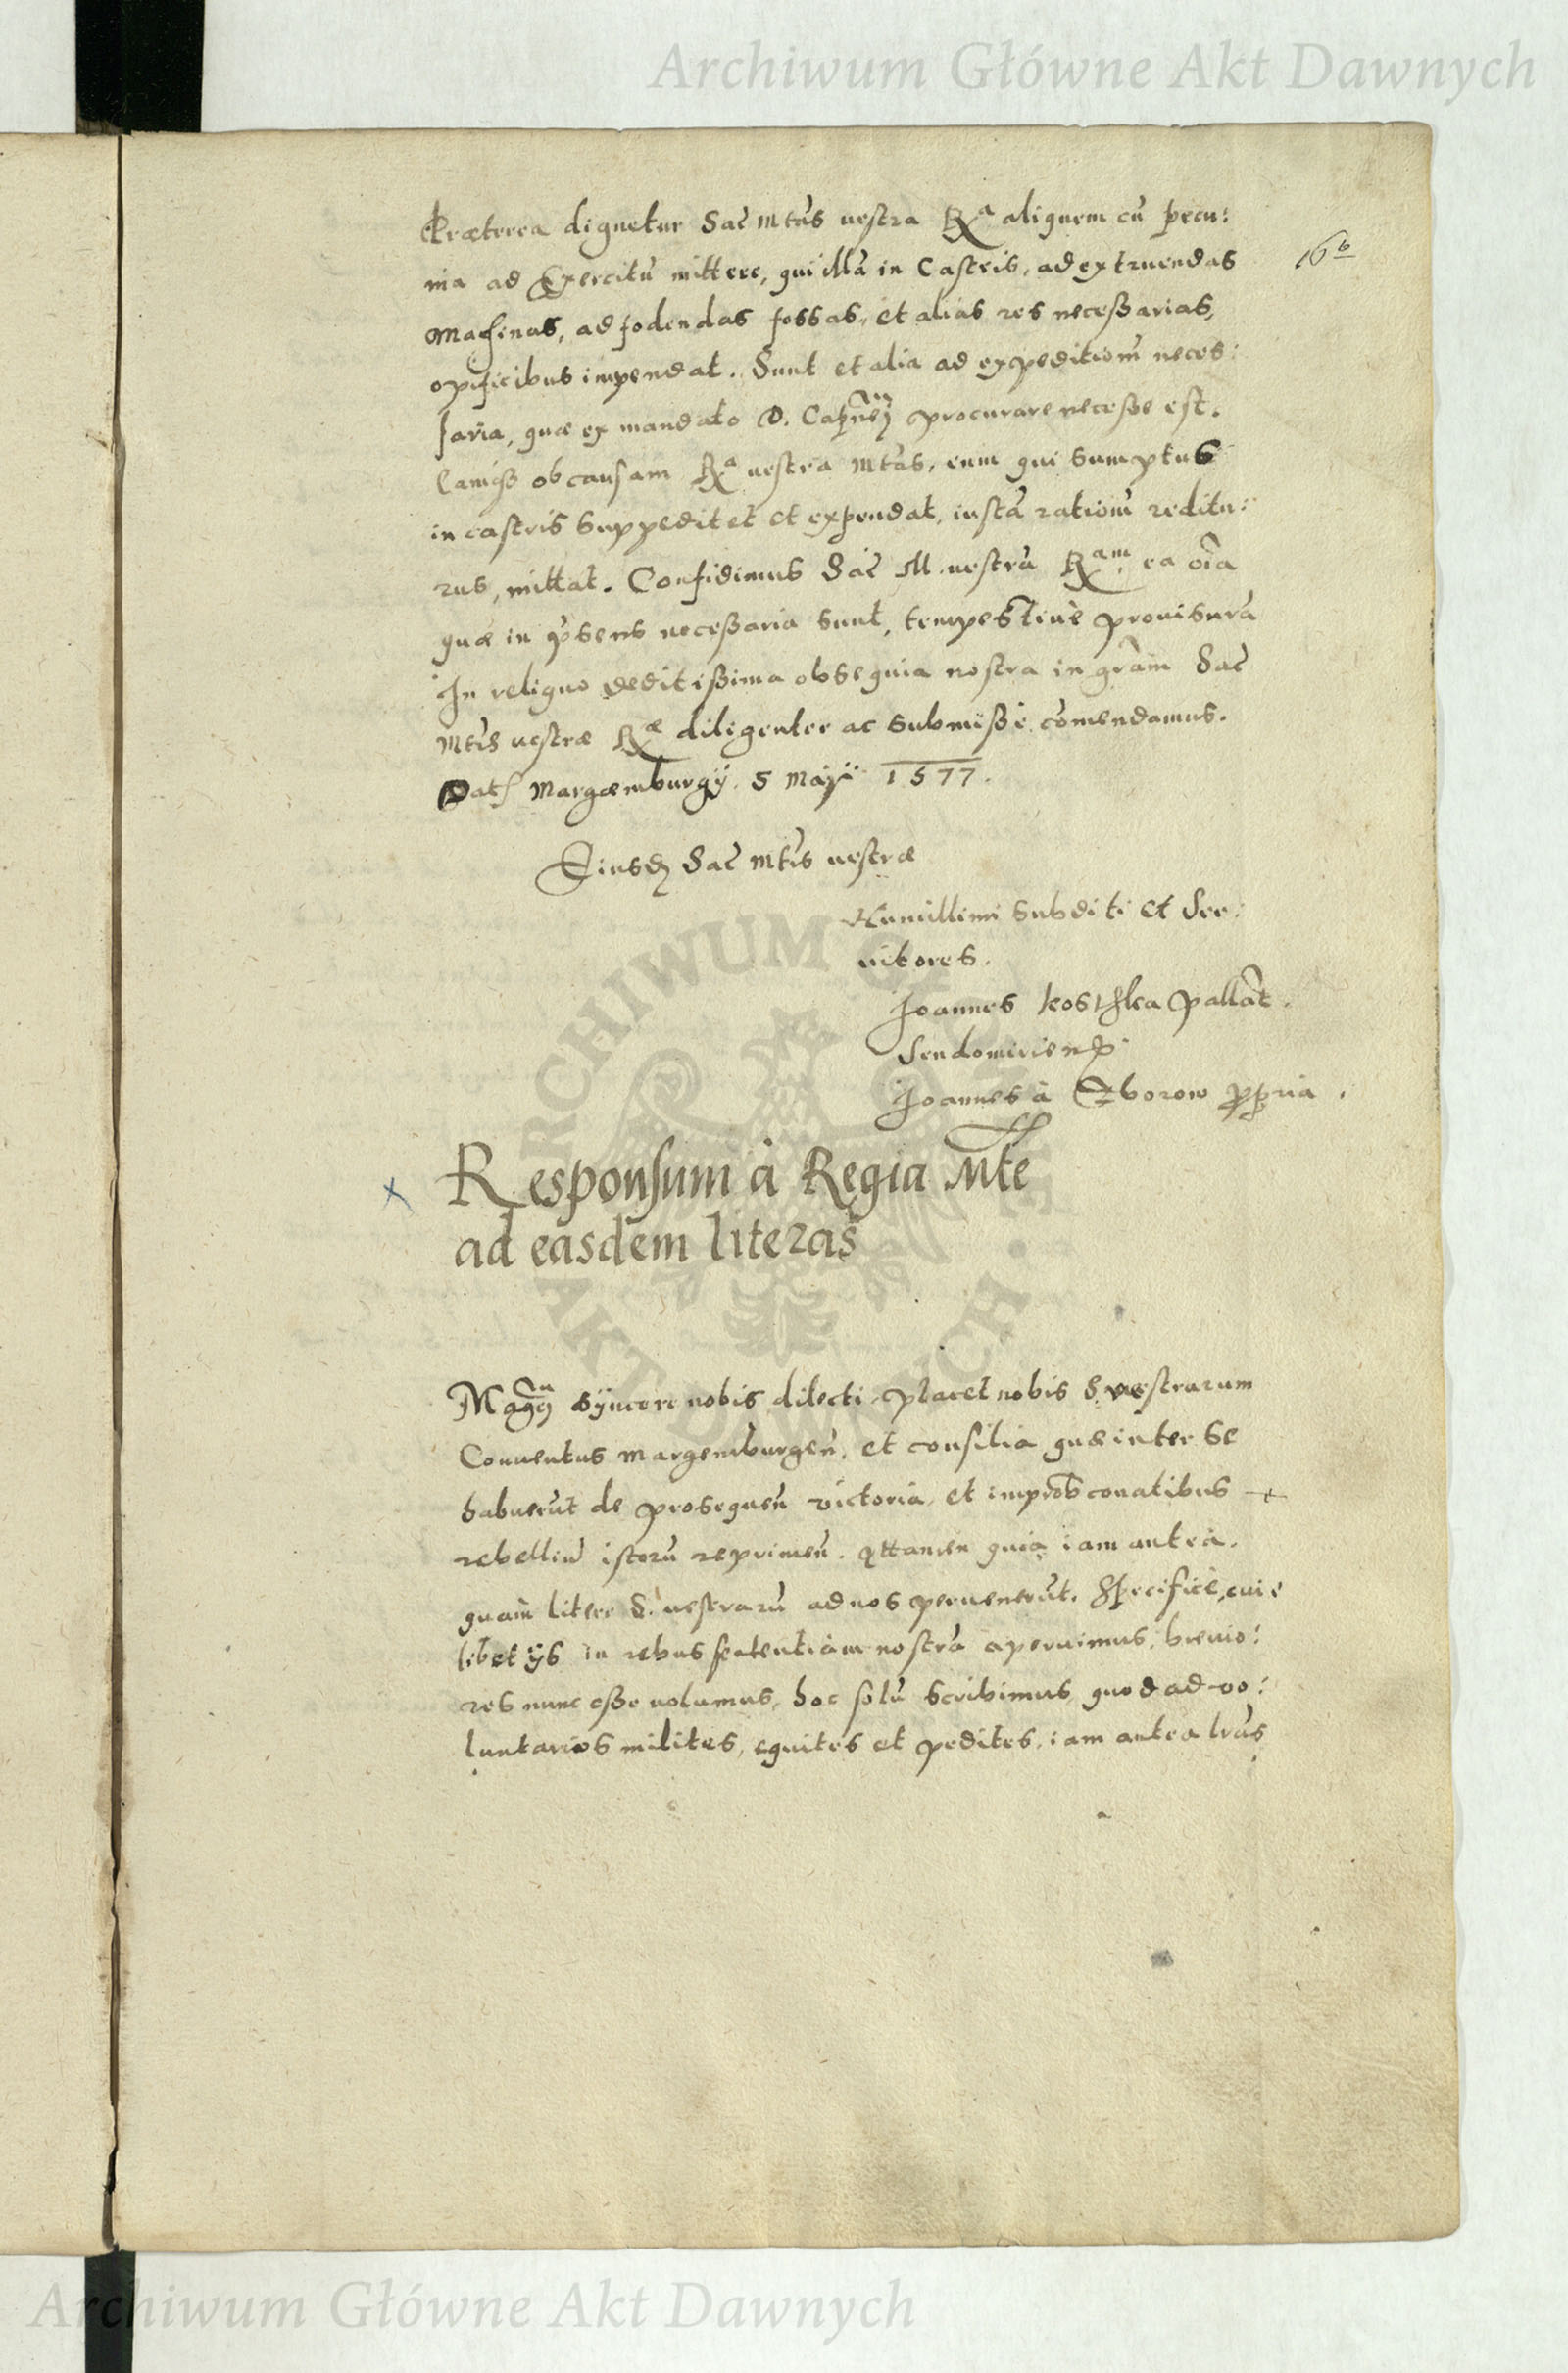 Archiwum Główne Akt Dawnych
Præterea dignetur Sac̄ Mtās uestra Rᵃ aliquem cū pecu:
nia ad Exercitū mittere, qui illā in Castris, ad extruendas
16ᵇ
Machinas, ad fodendas fossas, et alias res necessarias,
opificibus impendat. Sunt et alia ad expeditionē neces:
saria, quæ ex mandato D. procurare necesse est.
ob causam Rᵃ uestra Mtās, eum qui sumptus
in castris suppeditet et expendat, iustā rationē reditu:
rus, mittat. Confidimus Sac̄ M. uestrā Rᵃᵐ ea oīa
quæ in p̄sens necessaria sunt, tempestiuè prouisurā
In reliquo deditissima obsequia nostra in grām Sac̄
Mtīs uestræ Rᵆ diligenter ac submissè cōmendamus.
Dat Margæmburgÿ. 5 Maÿ 1577.
Eiusd Sac̄ Mtīs uestræ
Humillimi subditi et Ser:
uitores.
Joannes Kosthka Pallāt.
Sendomirien
Joannes à Zborow ppria.
Responsum à Regia Mte
ad easdem literas
Magc̄ÿ sÿncere nobis dilecti. Placet nobis S. uestrarum
Conuentus Margemburgen̄. et consilia quæ inter se
habuerūt de prosequen̄ victoria, et improb conatibus
rebelliū istorū reprimen̄. Attamen quia iam antea.
quàm literę S. uestrarū ad nos peruenerūt. Specificè, cui
libet ÿs in rebus sententiam nostrā aperuimus, breuio:
res nunc esse uolumus, hoc solū scribimus quod ad vo:
luntarios milites, equites et pedites, iam antea lrās
ARCHIWUM GŁÓWNE AKT DAWNYCH
Archiwum Główne Akt Dawnych